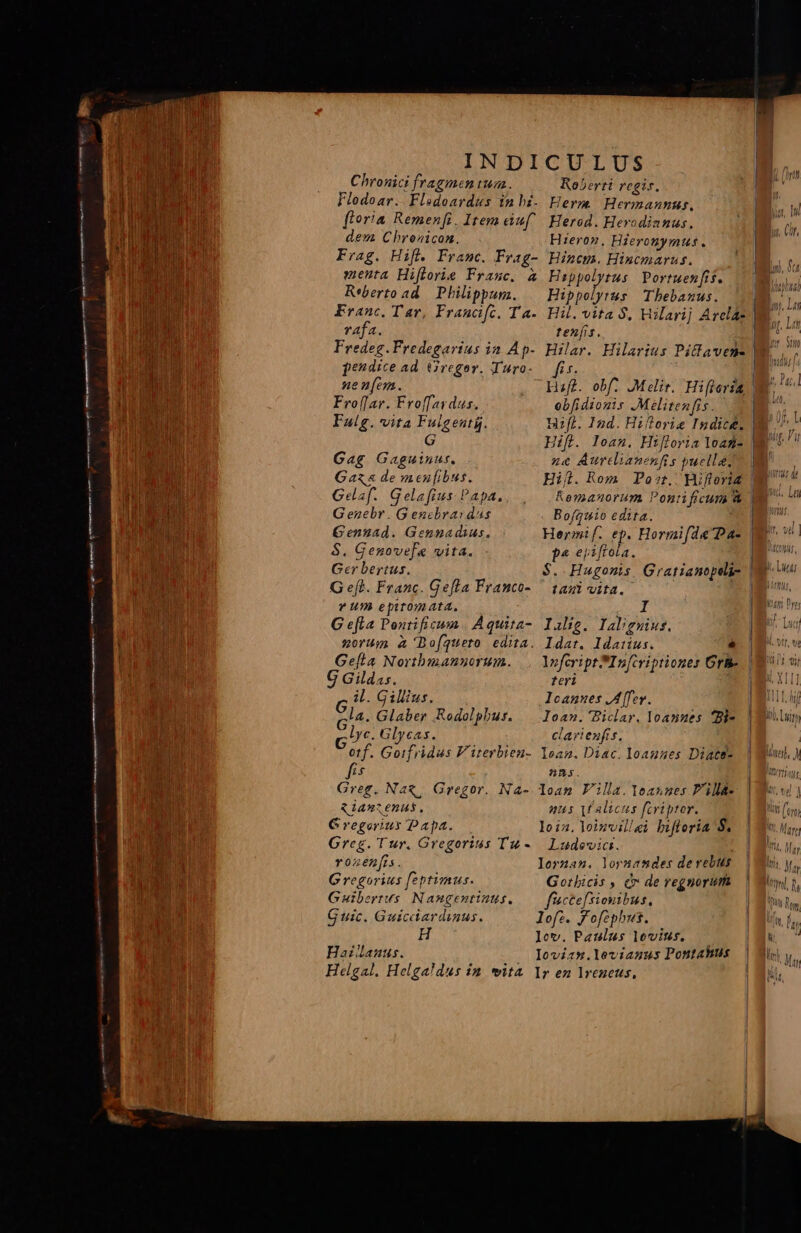 INDICULUS
Chronici fragmentum.
Flodoar. Flodoardus in hi-
ſtoria Remenſi. Item eiuſ
dem Chronicon.
Frag. Hiſt. Franc. Frag-
menta Hiſtoriæ Franc. à
Roberto ad Philippum.
Franc. Tar, Franciſc. Ta-
rafa.
Fredeg. Fredegarius in Ap-
pendice ad Gregor. Turo-
nenſem.
Froſſar. Froſſardus.
Fulg. vita Fulgentij.
G
Gag Gaguinus.
Gaza de menſibus.
Gelaſ. Gelaſius Papa.
Genebr. Genebrardus
Gennad. Gennadius.
S. Genovefæ vita.
Gerbertus.
Geſt. Franc. Geſta Franco-
rum epitomata.
Geſta Pontificum Aquita-
norum à Boſqueto edita.
Geſta Northmannorum.
Gildas.
Gil. Gillius.
Gla. Glaber Rodolphus.
Glyc. Glycas.
Gotf. Gotfridus Viterbien-
ſis
Greg. Naz. Gregor. Na-
zianzenus.
Gregorius Papa.
Greg. Tur. Gregorius Tu-
ronenſis.
Gregorius ſeptimus.
Guibertus Nangentinus.
Guic. Guicciardinus.
H
Haillanus.
Helgal. Helgaldus in vita
Roberti regis.
Herm Hermannus.
Herod. Herodianus.
Hieron. Hieronymus.
Hincm. Hincmarus.
Hippolytus Portuenſis.
Hippolytus Thebanus.
Hil. vita S. Hilarij Arela-
tenſis.
Hilar. Hilarius Pictaven-
ſis.
Hiſt. obſ. Melit. Hiſtoria
obſidionis Melitenſis.
Hiſt. Ind. Hiſtoriæ Indicæ.
Hiſt. Ioan. Hiſtoria Ioan-
næ Aurelianenſis puellæ.
Hiſt. Rom Pont. Hiſtoria
Romanorum Pontificum à
Boſquio edita.
Hormiſ. ep. Hormiſdæ Pa-
pæ epiſtola.
S. Hugonis Gratianopoli-
tani vita.
I
Ialig. Ialignius.
Idat. Idatius.
Inſcript. Inſcriptiones Gru-
teri
Ioannes Aſſer.
Ioan. Biclar. Ioannes Bi-
clarienſis.
Ioan. Diac. Ioannes Diaco-
nus.
Ioan Villa. Ioannes Villa-
nus Italicus ſcriptor.
Ioin. Ioinvillæi hiſtoria S.
Ludovici.
Iornan. Iornandes de rebus
Gothicis, & de regnorum
ſucceſsionibus.
Ioſe. Joſephus.
Iov. Paulus Iovius.
Iovian. Iovianus Pontanus
Iren Ireneus.